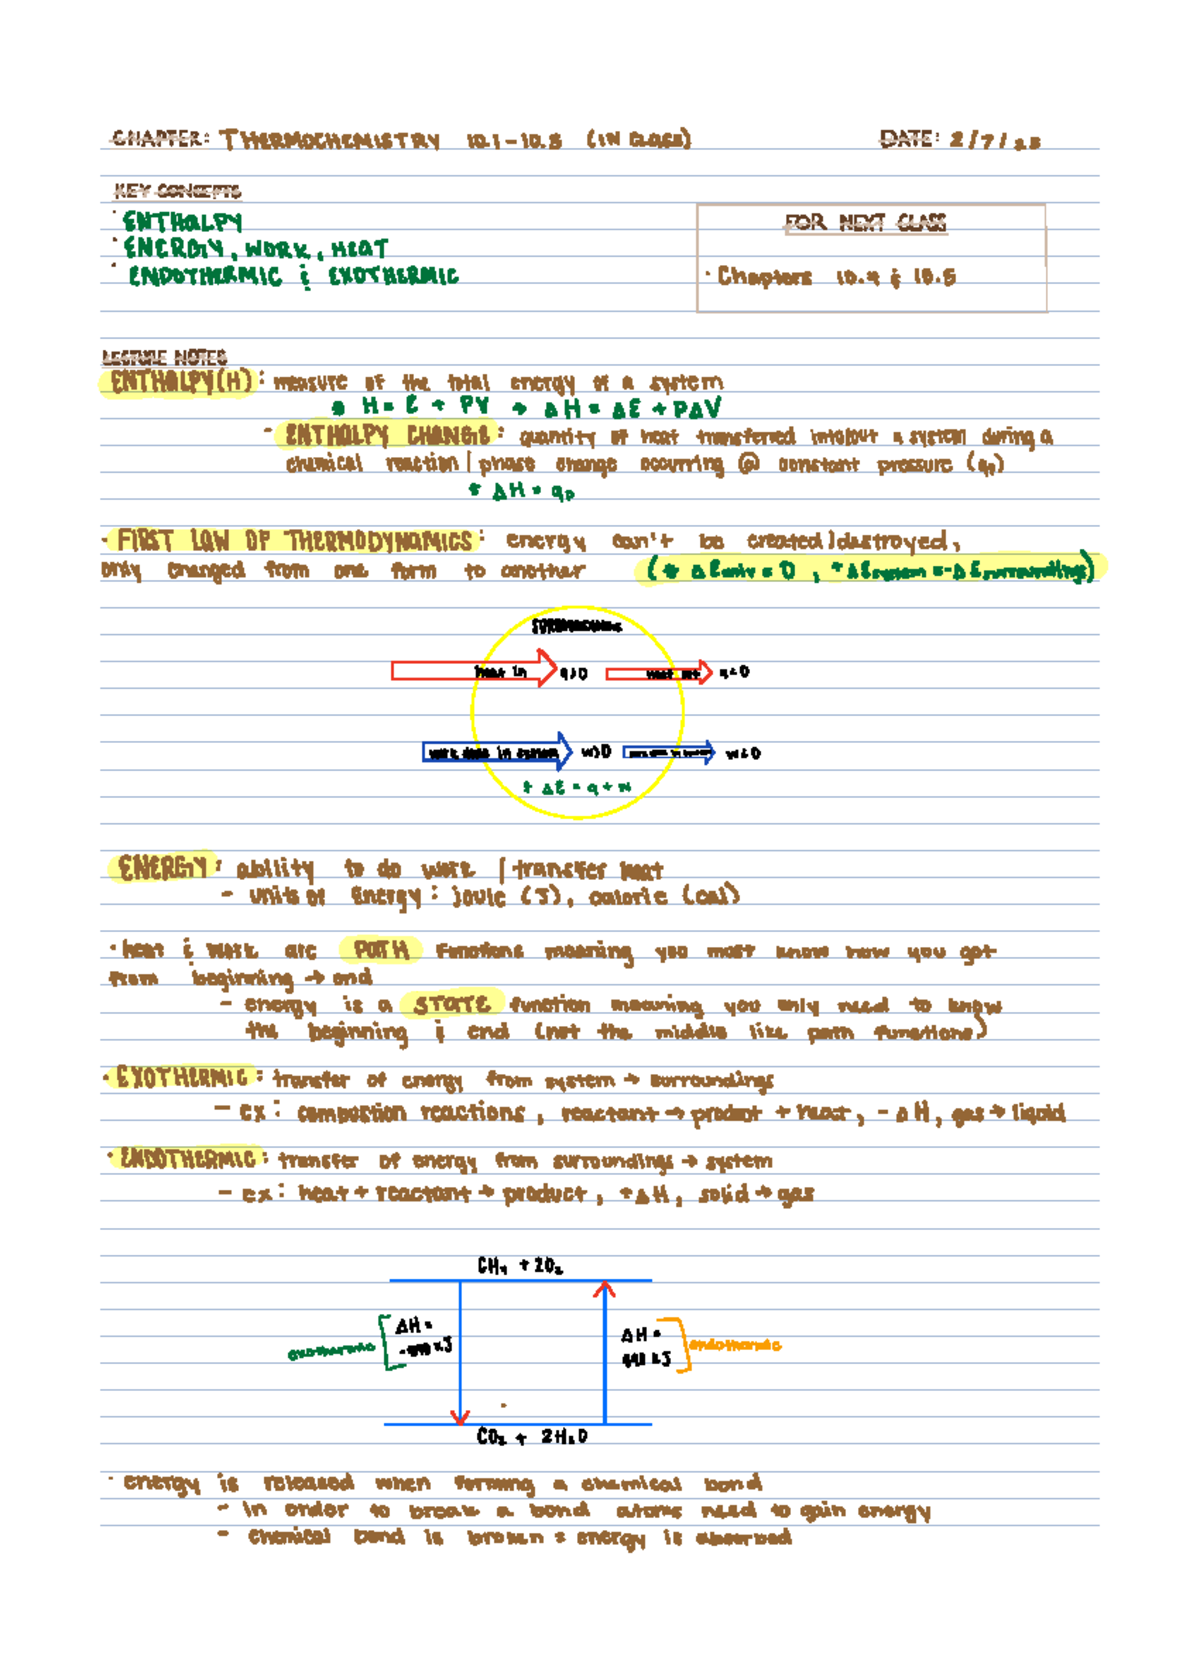 CHAPTER: THERMOCHEMISTRY 10.1-10.3 (IN CLASS) DATE: 2/7/23
KEY CONCEPTS
· ENTHALPY
· ENERGY, WORK, HEAT
· ENDOTHERMIC & EXOTHERMIC
FOR NEXT CLASS
· Chapters 10.4 & 10.5
LECTURE NOTES
ENTHALPY(H): measure of the total energy of a system
* H = E + PV → ΔH = ΔE + PΔV
- ENTHALPY CHANGE: quantity of heat transferred into/out a system during a
chemical reaction / phase change occurring @ constant pressure (qp)
* ΔH = qp
· FIRST LAW OF THERMODYNAMICS: energy can't be created/destroyed,
only changed from one form to another (* ΔEuniv = 0, *ΔEsystem = -ΔEsurroundings)
SURROUNDINGS
heat in q>0 heat out q<0
work done in system w>0 w<0
* ΔE = q + w
ENERGY: ability to do work / transfer heat
- units of Energy: joule (J), calorie (cal)
· heat & work are PATH functions meaning you must know how you got
from beginning → end
- energy is a STATE function meaning you only need to know
the beginning & end (not the middle like path functions)
· EXOTHERMIC: transfer of energy from system → surroundings
- ex: combustion reactions, reactant → product + heat, -ΔH, gas → liquid
· ENDOTHERMIC: transfer of energy from surroundings → system
- ex: heat + reactant → product, +ΔH, solid → gas
CH₄ + 2O₂
exothermic ΔH = kJ ΔH = kJ endothermic
CO₂ + 2H₂O
· energy is released when forming a chemical bond
- in order to break a bond atoms need to gain energy
- chemical bond is broken = energy is absorbed